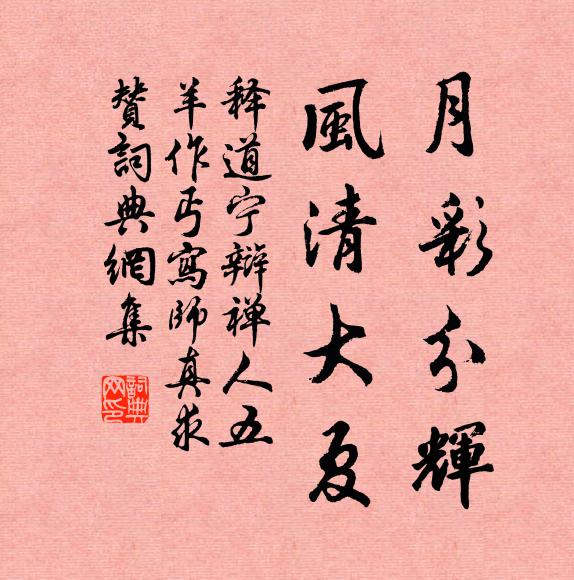 月彩分輝
風清大夏
释道宁辯禅人五
羊作丐寫師真求
賛詞典網集
詞典
网印